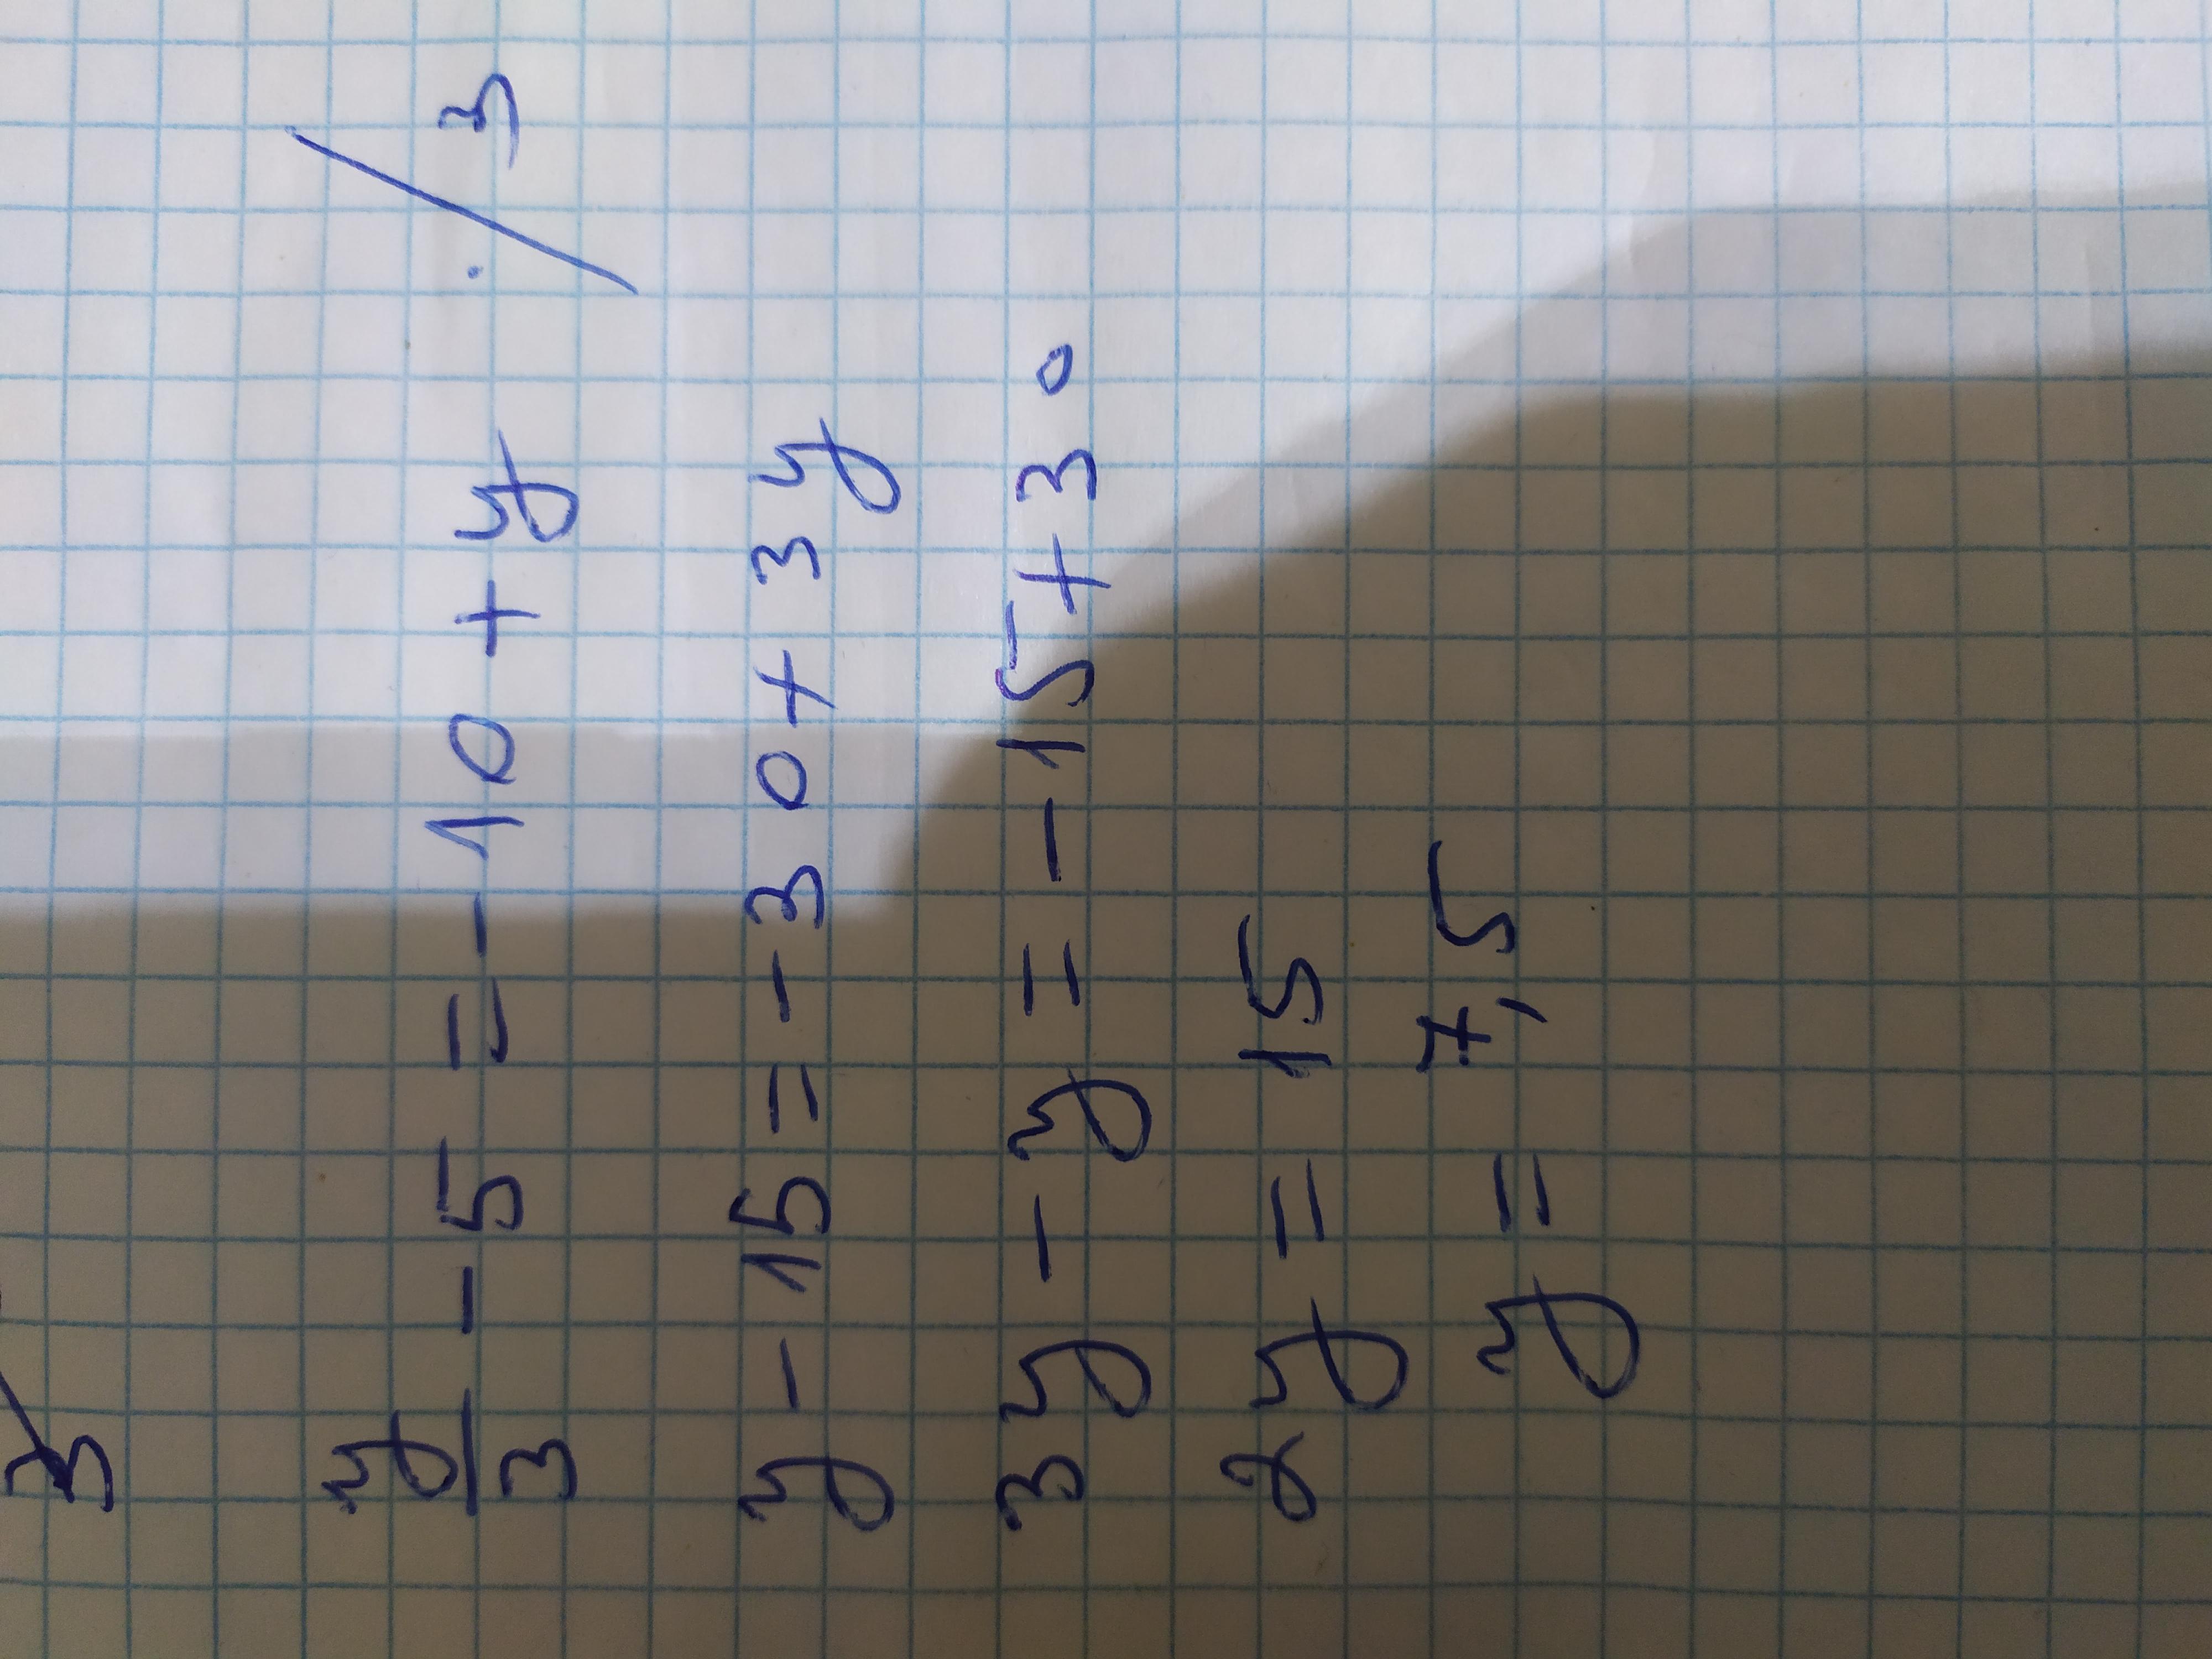 3
y/3 - 5 = -10 + y /·3
y - 15 = -30 + 3y
3y - y = -15 + 30
2y = 15
y = 7,5